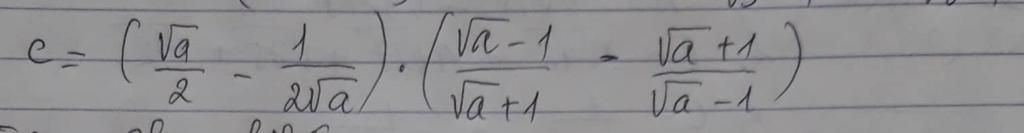 C = (√a/2 - 1/2√a) . (√a - 1/√a + 1 - √a + 1/√a - 1)